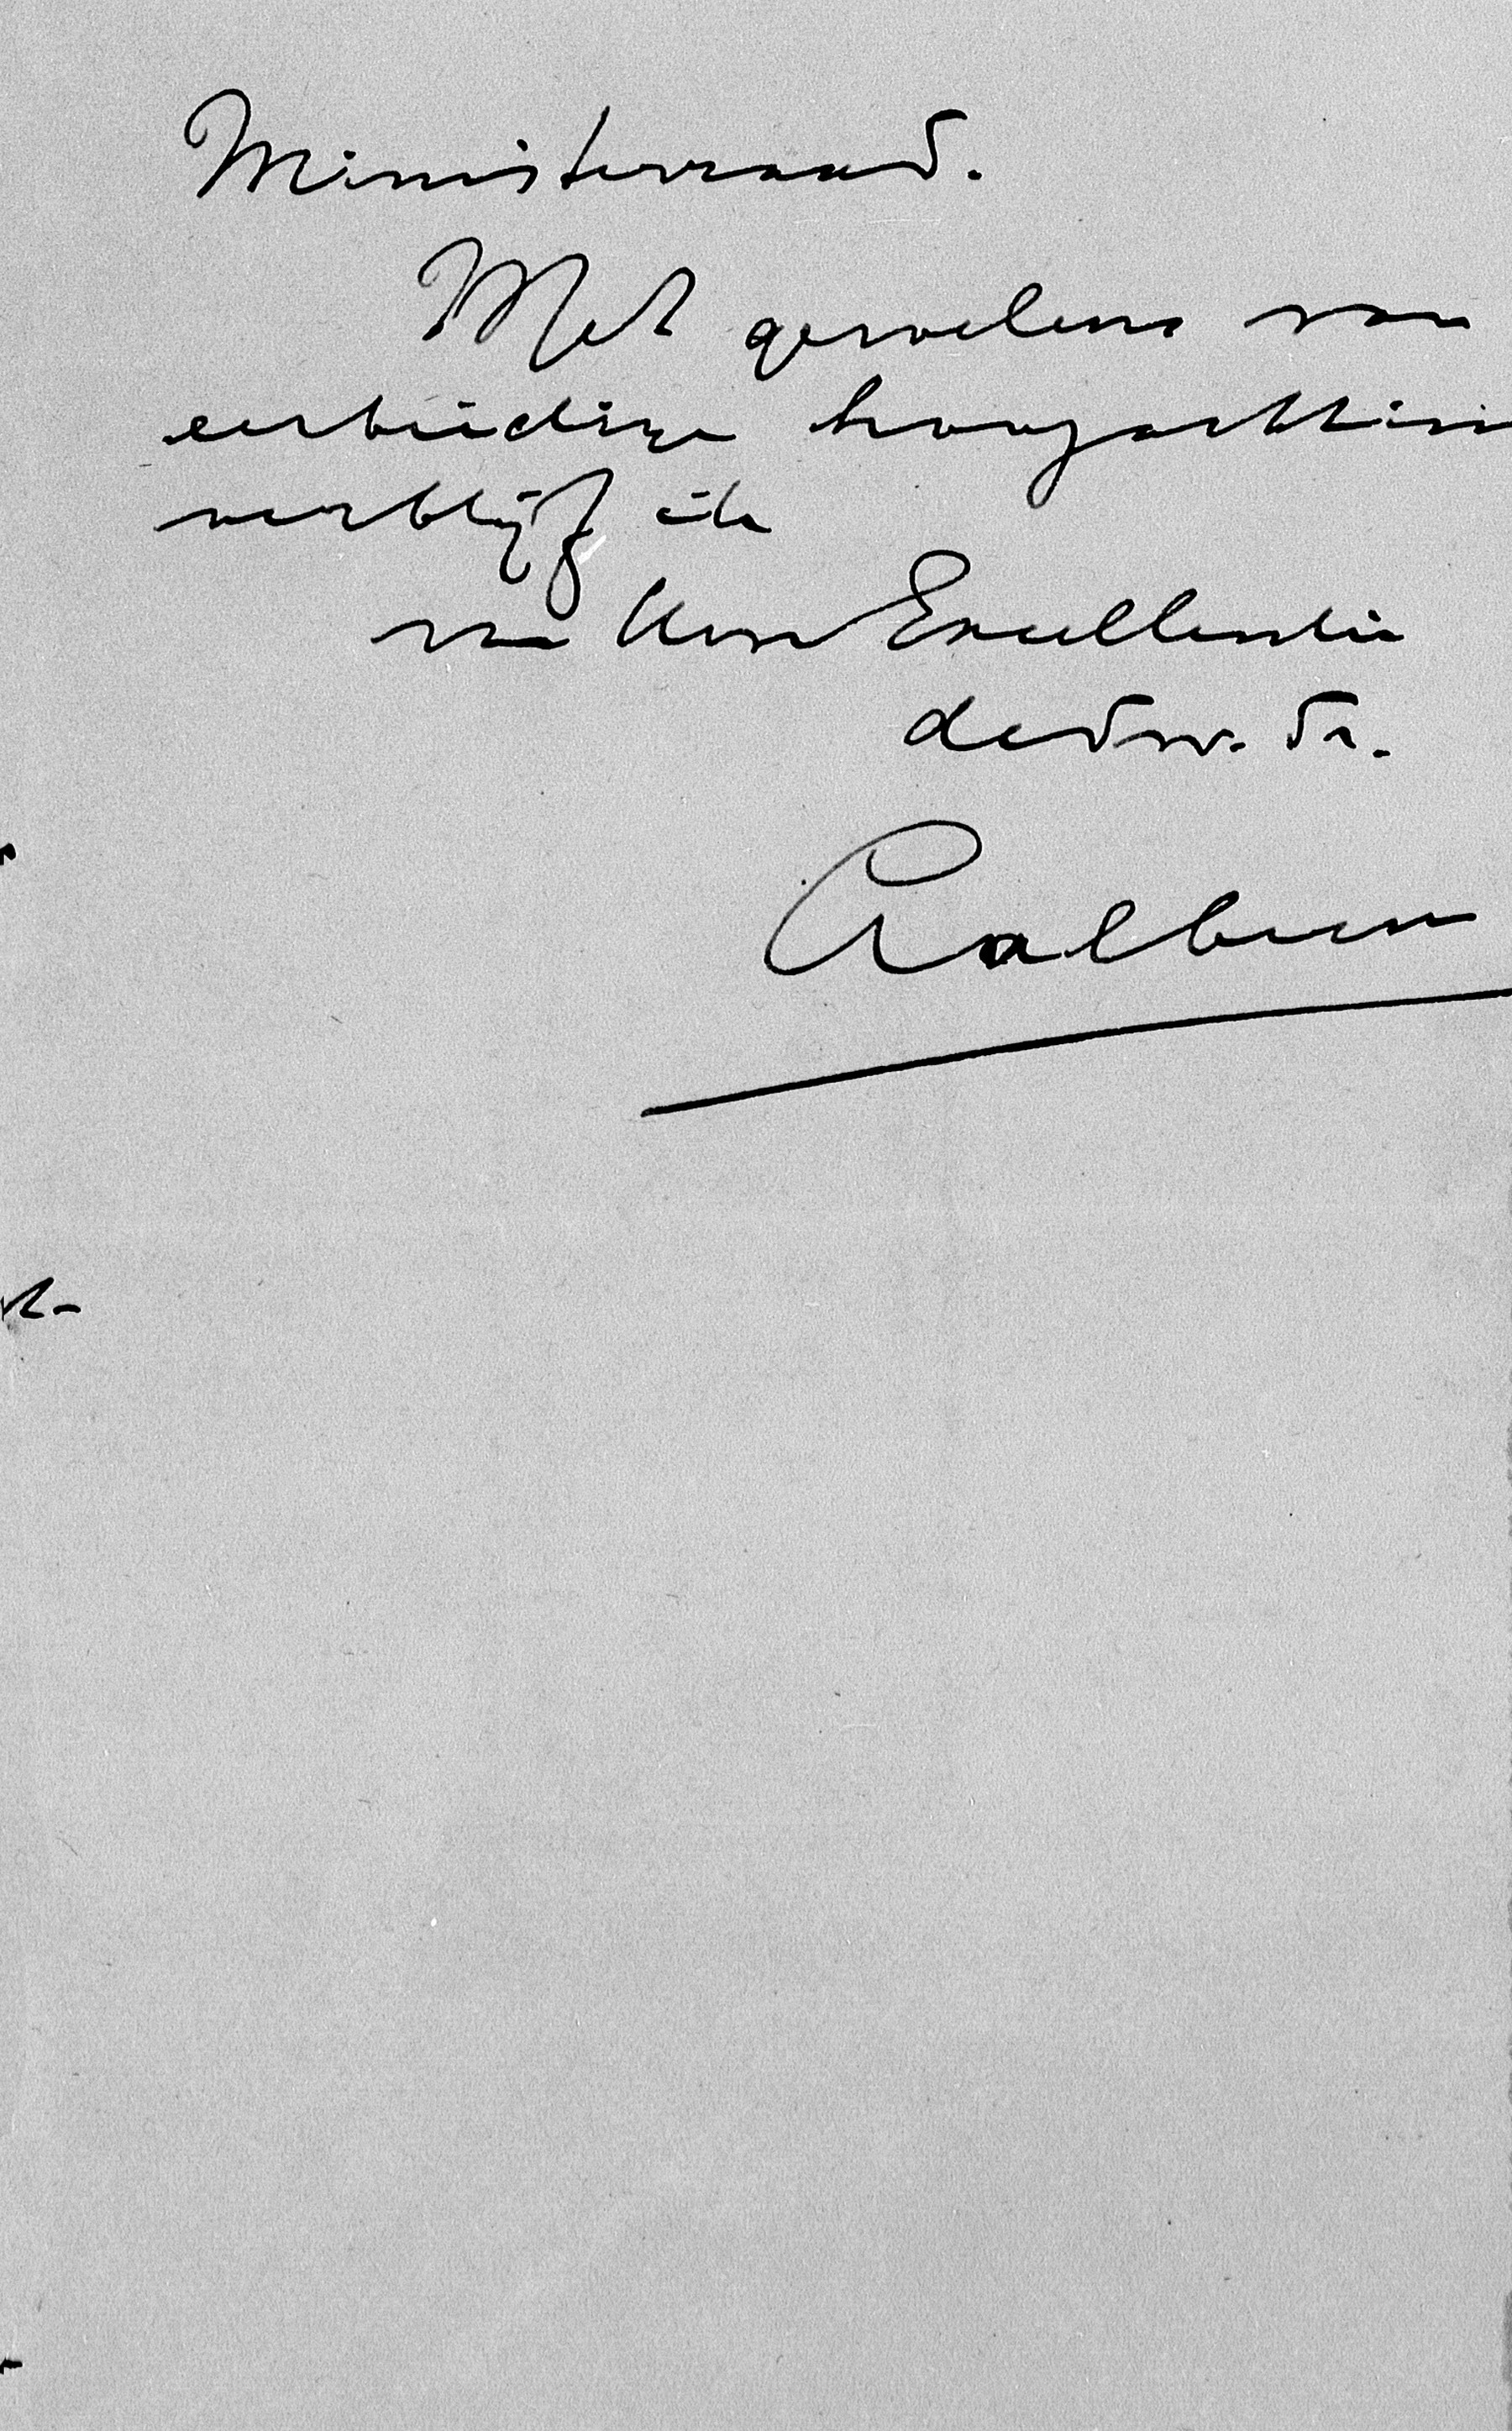 Ministerraad.
Met gevoelens van
eerbiedige hoogachtin
verblijf ik
van Uwe Excellentie
dedw. dr.
Aalberse